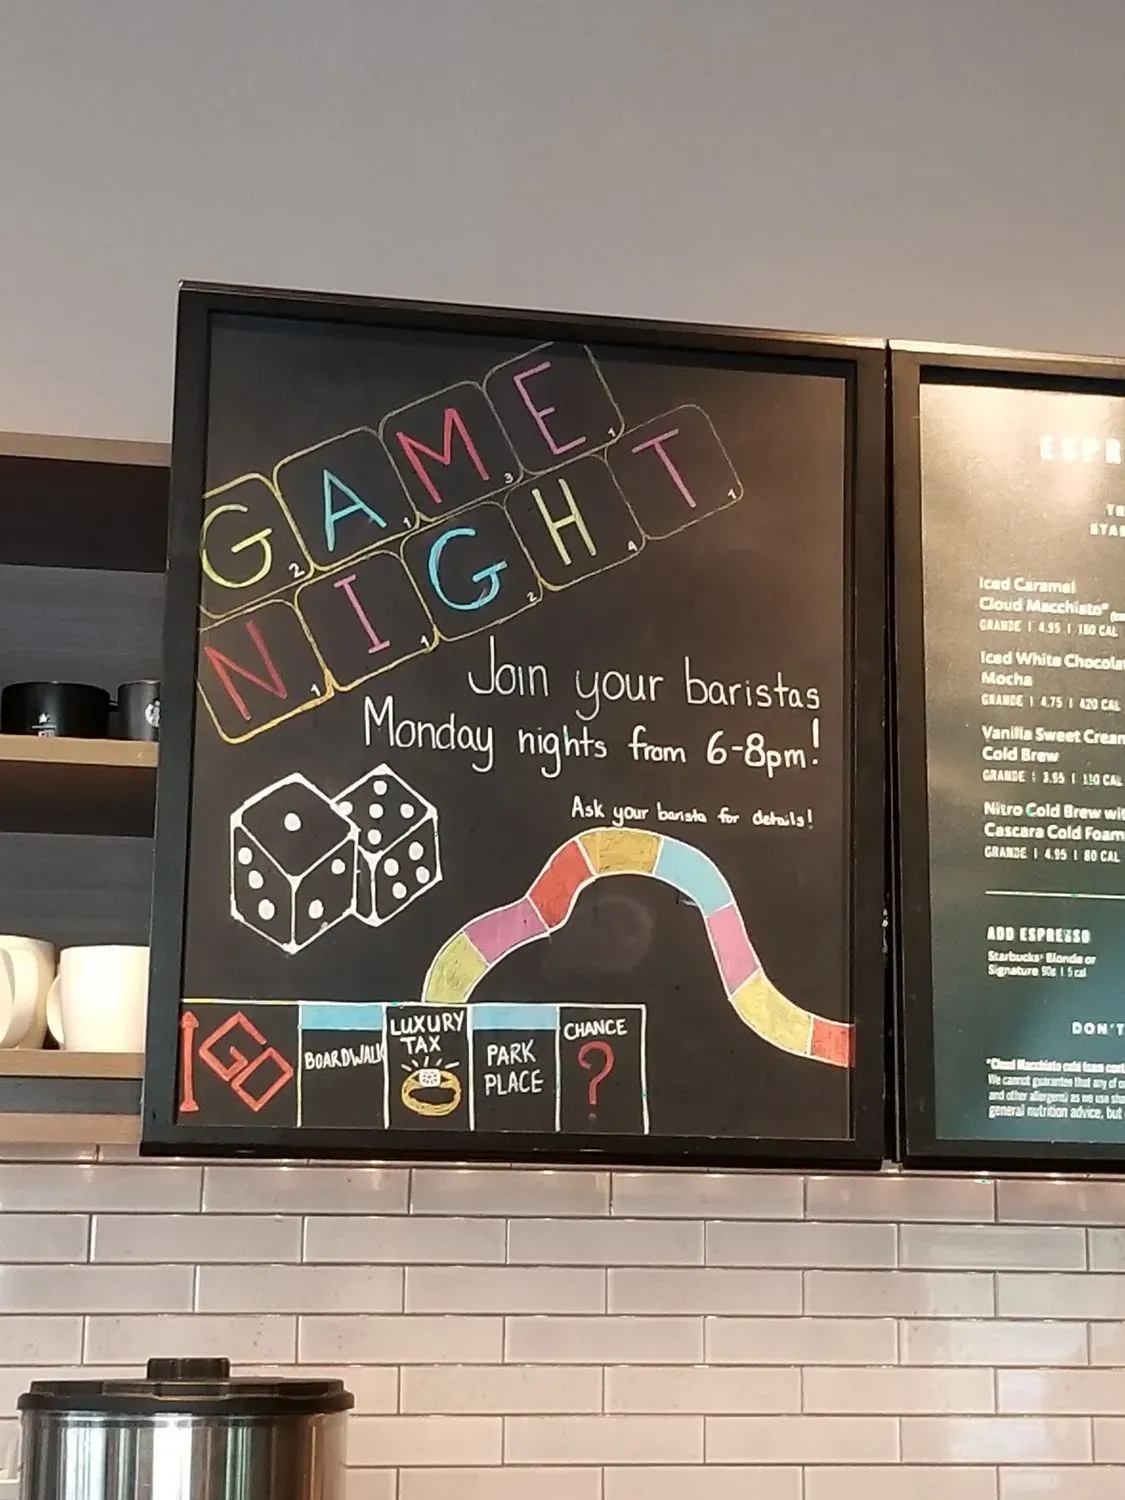 GAME
2 1 3 1
NIGHT
1 1 2 4 1
Join your baristas
Monday nights from 6-8pm!
Ask your barista for details!
GO
BOARDWALK
LUXURY
TAX
PARK
PLACE
CHANCE
?
Iced Caramel
Cloud Macchiato®
GRANDE | 4.95 | 180 CAL
Iced White
Mocha
GRANDE | 4.75 | 420 CAL
Vanilla Sweet
Cold Brew
GRANDE | 3.95 | 110 CAL
Nitro Cold Brew
Cascara Cold Foam
GRANDE | 4.95 | 80 CAL
ADD ESPRESSO
Starbucks® Blonde or
Signature 90¢ | 5 cal
DON'T
"Cloud Macchiato cold foam
We cannot guarantee that any of
and other allergens) as we use
general nutrition advice, but